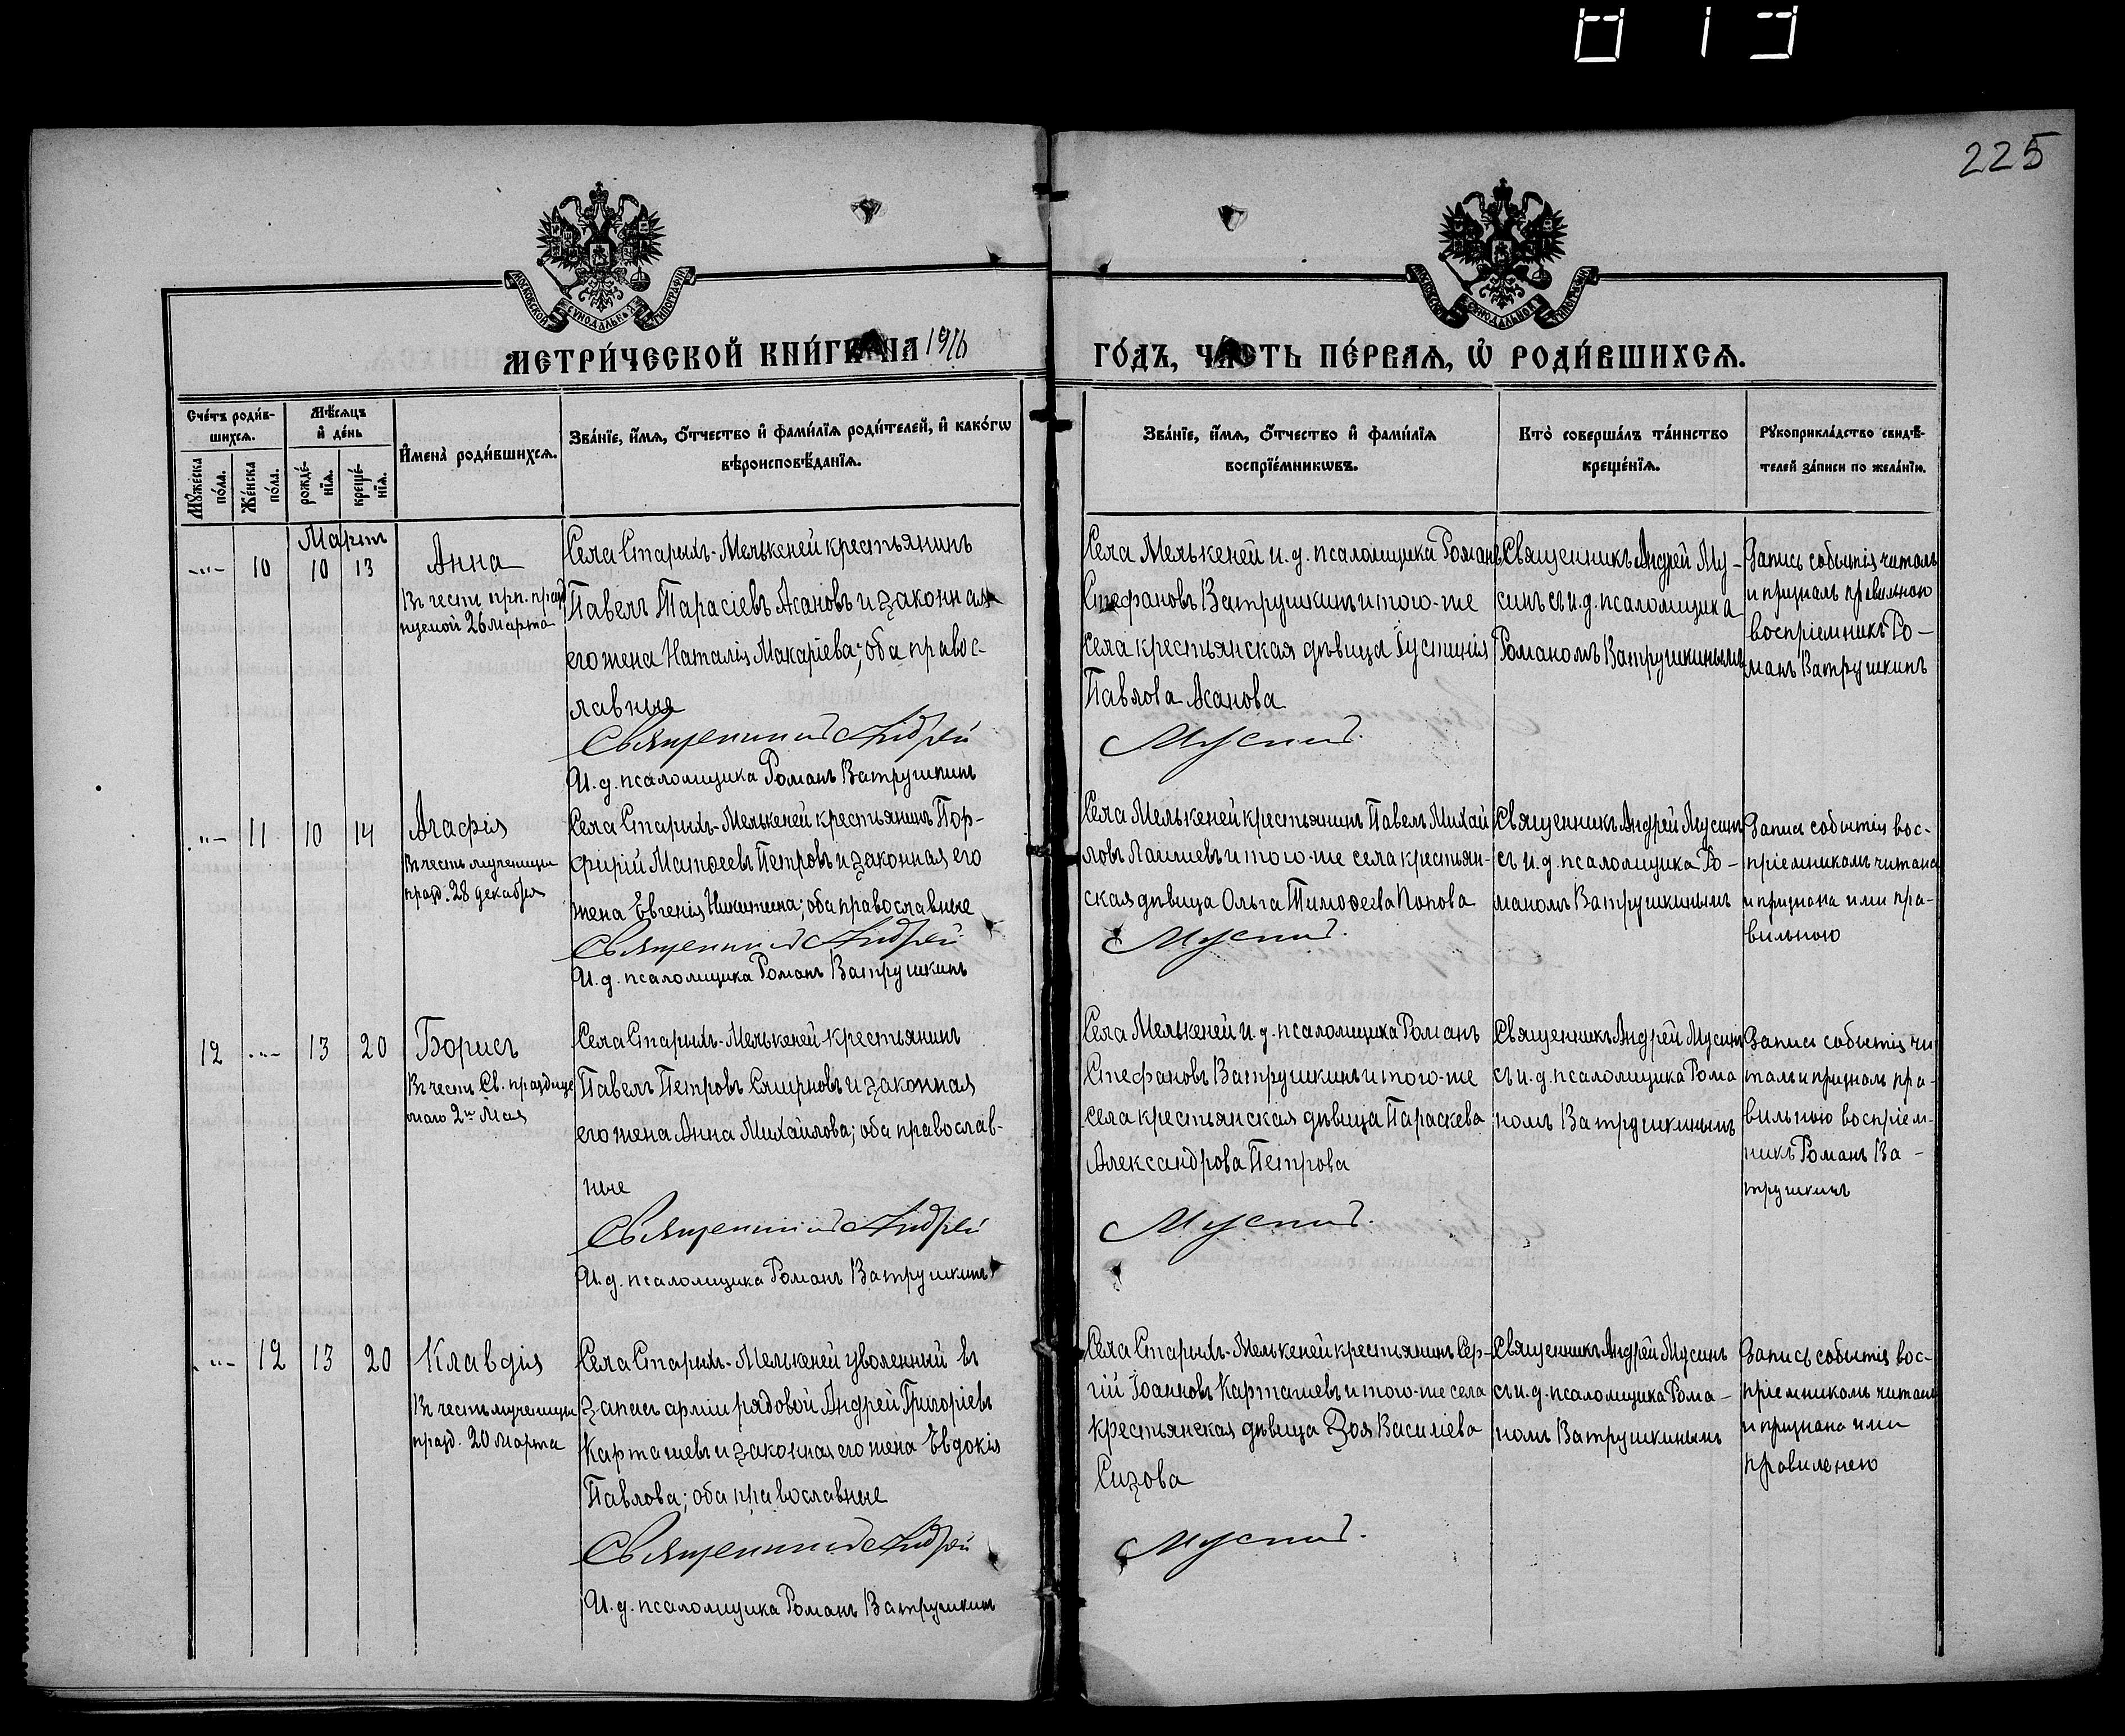 225
МОСКОВСКОЙ СѴНОДАЛЬНОЙ ТИПОГРАФІИ
МОСКОВСКОЙ СѴНОДАЛЬНОЙ ТИПОГРАФІИ
МЕТРИ́ЧЕСКОЙ КНИ́ГИ НА 1916
ГО́ДЪ, ЧА́СТЬ ПЕ́РВАѦ, Ѡ҆ РОДИ́ВШИХСѦ.
Сче́тъ роди́в-
шихсѧ.
Мѣ́сѧцъ
и҆ де́нь
Мꙋ́жеска
по́ла.
Же́нска
по́ла.
рожде́-
нїѧ.
креще́-
нїѧ.
И҆мена̀ роди́вшихсѧ.
Зва́нїе, и҆́мѧ, ѻ҆́тчество и҆ фами́лїѧ роди́телей, и҆ како́гѡ
вѣроисповѣ́данїѧ.
Зва́нїе, и҆́мѧ, ѻ҆́тчество и҆ фами́лїѧ
воспрїе́мникѡвъ.
Кто̀ соверша́лъ та́инство
креще́нїѧ.
Рꙋкоприкла́дство свидѣ́-
телей за́писи по жела́нїю.
Мартъ
-"- 10 10 13
Анна
Въ честь прп. празд
нуемой 26 марта
Села Старыхъ-Мелькеней крестьянинъ
Павелъ Тарасіевъ Асановъ и законная
его жена Наталія Макаріева; оба правос-
лавные
Священникъ Андрей
И.д. псаломщика Романъ Ватрушкинъ
Села Мелькеней и.д. псаломщика Романъ
Стефановъ Ватрушкинъ и того-же
села крестьянская дѣвица Іустинія
Павлова Асанова
Мусинъ.
Священникъ Андрей Му-
синъ съ и.д. псаломщика
Романомъ Ватрушкинымъ
Запись событія читалъ
и призналъ правильною
воспріемникъ Ро-
манъ Ватрушкинъ
-"- 11 10 14
Агафія
Въ честь мученицы
празд. 28 декабря
Села Старыхъ-Мелькеней крестьянинъ Пор-
фирій Матѳеевъ Петровъ и законная его
жена Евгенія Никитина; оба православные
Священникъ Андрей
И.д. псаломщика Романъ Ватрушкинъ
Села Мелькеней крестьянинъ Павелъ Михай
ловъ Лаишевъ и того-же села крестьян-
ская дѣвица Ольга Тимоѳеева Попова
Мусинъ.
Священникъ Андрей Мусинъ
съ и.д. псаломщика Ро-
маномъ Ватрушкинымъ
Запись событія вос-
пріемникомъ читана
и признана ими пра-
вильною
12 -"- 13 20
Борисъ
Въ честь Св. праздnуе
мого 2го Мая
Села Старыхъ-Мелькеней крестьянинъ
Павелъ Петровъ Смирновъ и законная
его жена Анна Михайлова; оба православ-
ные
Священникъ Андрей
И.д. псаломщика Романъ Ватрушкинъ
Села Мелькеней и.д. псаломщика Романъ
Стефановъ Ватрушкинъ и того-же
села крестьянская дѣвица Параскева
Александрова Петрова
Мусинъ.
Священникъ Андрей Мусинъ
съ и.д. псаломщика Рома
номъ Ватрушкинымъ
Запись событія чи
талъ и призналъ пра-
вильною воспріем-
никъ Романъ Ва-
трушкинъ
-"- 12 13 20
Клавдія
Въ честь мученицы
празд. 20 марта
Села Старыхъ-Мелькеней уволенный въ
запасъ арміи рядовой Андрей Григоріевъ
Карташевъ и законная его жена Евдокія
Павлова; оба православные
Священникъ Андрей
И.д. псаломщика Романъ Ватрушкинъ
Села Старыхъ-Мелькеней крестьянинъ Сер-
гій Іоанновъ Карташевъ и того-же села
крестьянская дѣвица Зоя Василіева
Сизова
Мусинъ.
Священникъ Андрей Мусинъ
съ и.д. псаломщика Рома-
номъ Ватрушкинымъ
Запись событія вос-
пріемникомъ читана
и признана ими
правильною